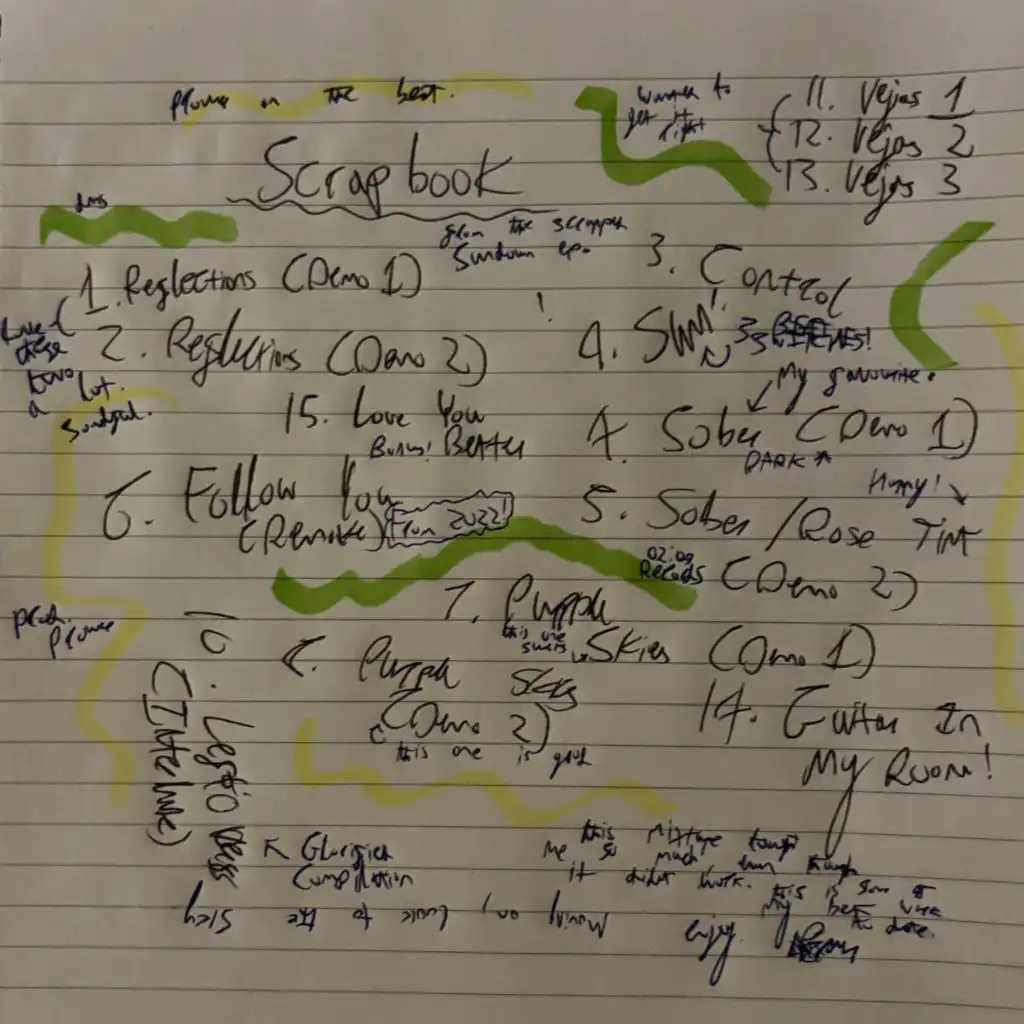 on the best.
wanted to
get it
right
11. Vejas 1
12. Vejas 2
13. Vejas 3
Scrapbook
from the scrapped
Sundown ep.
1. Reflections (Demo 1)
2. Reflections (Demo 2)
these
two
a lot.
3. Control
4. SWM!
My favourite.
15. Love You
Better
Bonus!
4. Sober (Demo 1)
DARK
Happy!
6. Follow You
(Remake)
From 2022!
5. Sober / Rose Tint
(Demo 2)
Records
7. Purple
Skies (Demo 1)
this one
prod.
8. Purple Skies
(Demo 2)
this one is good
14. Guitar In
My Room!
10.
(Interlude)
Glorified
Compilation
this mixtape taught
me so much, even though
it didnt work.
this is some of
my best work
to date.
enjoy.
Moving on, look to the sky